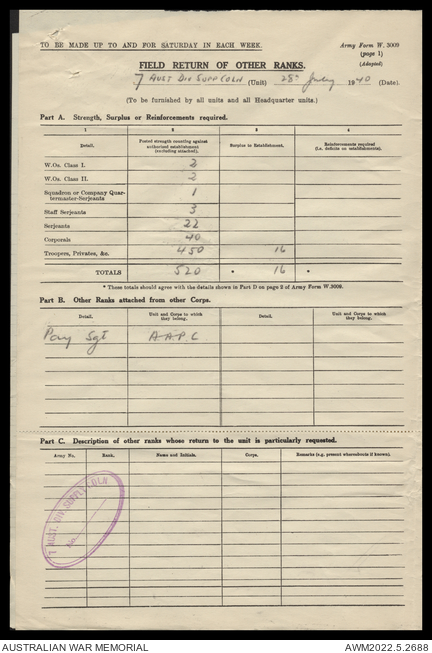 TO BE MADE UP TO AND FOR SATURDAY IN EACH WEEK.
Army Form W. 3009
(page 1)
(Adapted)
FIELD RETURN OF OTHER RANKS.
7 AUST DIV SUPP COLN (Unit) 28th July 1940 (Date).
(To be furnished by all units and all Headquarter units.)
Part A. Strength, Surplus or Reinforcements required.
1 2 3 4
Detail. Posted strength counting against authorized establishment (excluding attached). Surplus to Establishment. Reinforcements required (i.e. deficits on establishments).
W.Os. Class I. 2
W.Os. Class II. 2
Squadron or Company Quar-
termaster-Serjeants 1
Staff Serjeants 3
Serjeants 22
Corporals 40
Troopers, Privates, &c. 450 16
TOTALS 520 * 16 *
* These totals should agree with the details shown in Part D on page 2 of Army Form W.3009.
Part B. Other Ranks attached from other Corps.
Detail. Unit and Corps to which they belong. Detail. Unit and Corps to which they belong.
Pay Sgt A.A.P.C
Part C. Description of other ranks whose return to the unit is particularly requested.
Army No. Rank. Name and Initials. Corps. Remarks (e.g. present whereabouts if known).
7 AUST. DIV. SUPPLY COLN
No.
AUSTRALIAN WAR MEMORIAL
AWM2022.5.2688